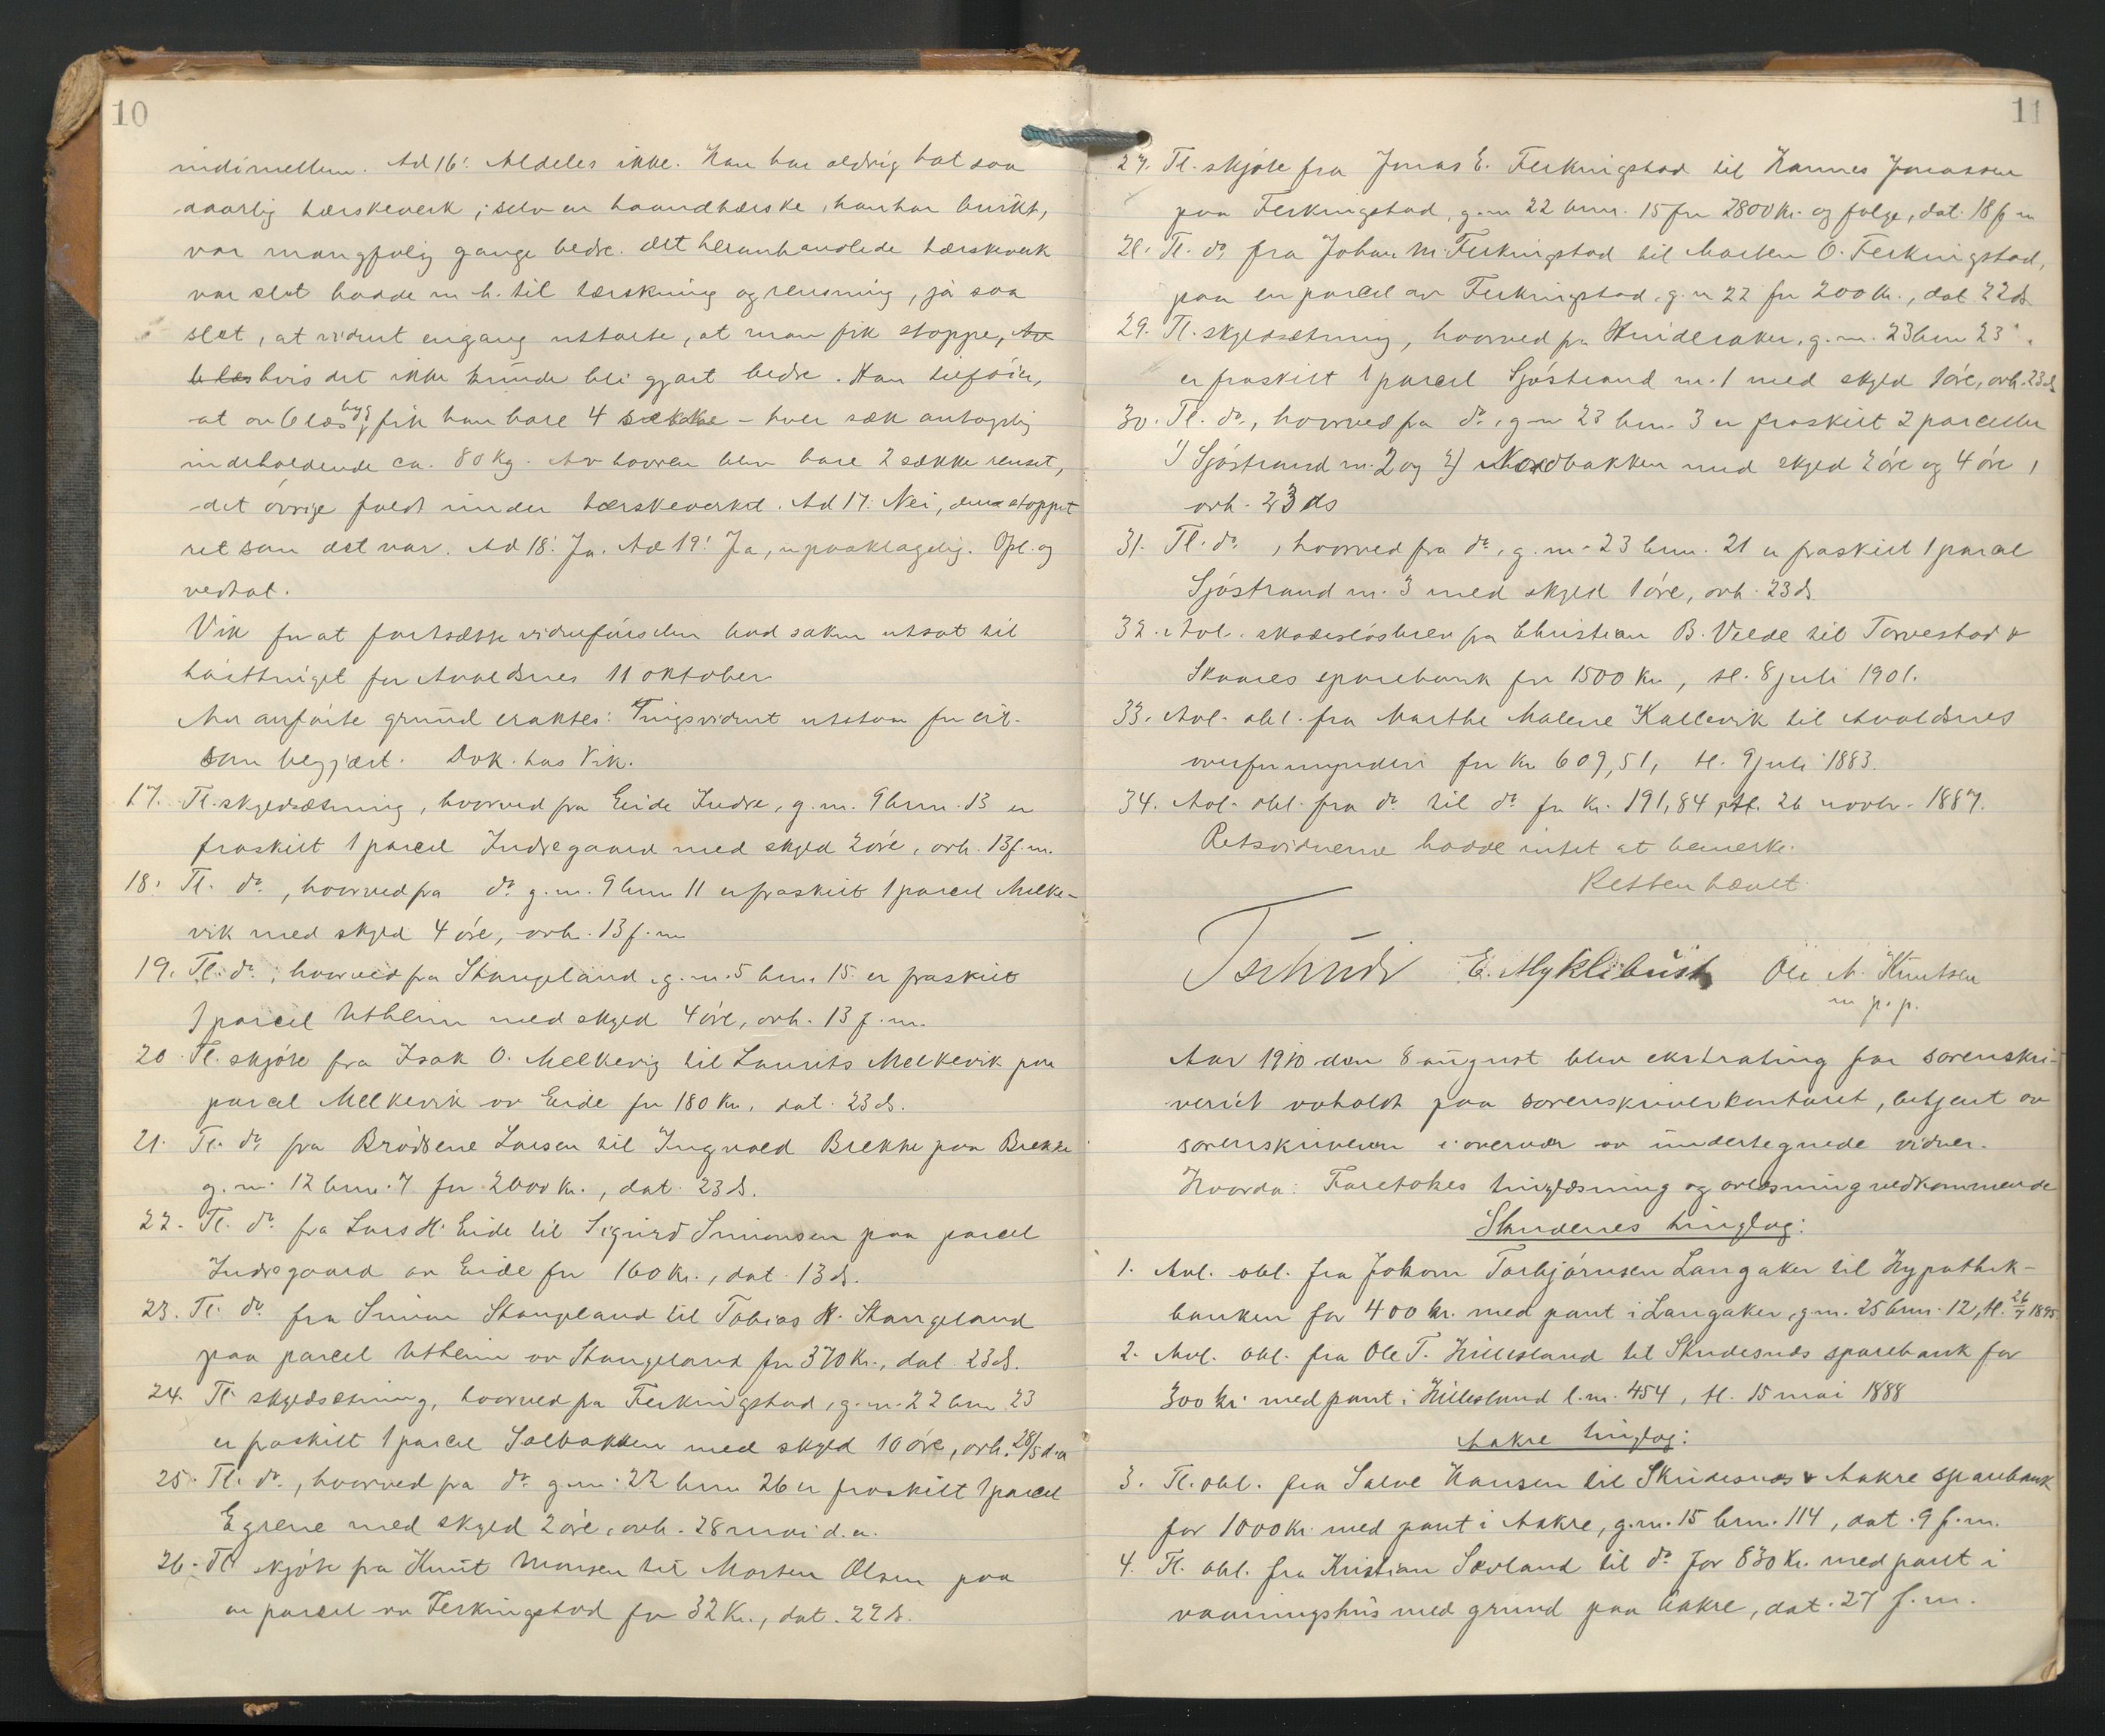 10
indimellem. Ad 16: Aldeles ikke. Han har aldrig hat saa
daarlig tærskeverk; selv en haandtærske, han har brukt,
var mangfolig gange bedre. Det heromhandlede tærskverk
var slet baade m. h. til tærskning og rensning, ja saa
slet, at vidnet engang uttalte, at man fik stoppe,
hvis det ikke kunde bli gjort bedre. Han tilføier,
at av 6 læs byg, fik han bare 4 sække – hver sæk antagelig
indeholdende ca. 80 kg. Av havren blev bare 2 sække renset,
det øvrige faldt under tærskeverket. Ad 17: Nei, den stoppet
ret som det var. Ad 18: Ja. Ad 19: Ja, upaaklagelig. Opl. og
vedtat.
Vik for at fortsætte vidneførselen bad saken utsat til
høsttinget for Avaldsnes 11 oktober
Av anførte grund eraktes: Tingsvidnet utstaar
som begjært. Dok. hos Vik.
17. Tl. skyldsætning, hvorved fra Eide Indre, g. nr. 9 brnr. 13 er
fraskilt 1 parcel Indregaard med skyld 2 øre, avh. 13 f. m.
18. Tl. do, hvorved fra do g. nr. 9 brnr 11 er fraskilt 1 parcel Melke-
vik med skyld 4 øre, avh. 13 f. m
19. Tl. do, hvorved fra Stangeland, g. nr. 5 brnr. 15 er fraskilt
1 parcel Utheim med skyld 4 øre, avh. 13 f. m.
20. Tl. skjøte fra Isak O. Melkevig til Laurits Melkevik paa
parcel Melkevik av Eide for 180 Kr., dat. 23 ds.
21. Tl. do fra Brødsene Larsen til Ingvald Brekke paa Brekke
g. nr. 12 brnr. 7 for 2000 Kr., dat. 23 ds.
22. Tl. do fra Lars H. Eide til Sigurd Simonsen paa parcel
Indregaard av Eide for 160 Kr., dat. 13 ds.
23. Tl. do fra Simon Stangeland til Tobias N. Stangeland
paa parcel Utheim av Stangeland for 370 Kr., dat. 23 ds.
24. Tl skyldsætning, hvorved fra Ferkingstad, g. nr. 22 brnr 23
er fraskilt 1 parcel Solbakken med skyld 10 øre, avh. 28/5 d. a
25. Tl. do, hvorved fra do g. nr. 22 brnr 26 er fraskilt 1 parcel
Egrene med skyld 2 øre, avh. 28 mai d. a.
26. Tl skjøte fra Knut Monsen til Morten Olsen paa
en parcel av Ferkingstad for 32 Kr., dat. 22 ds.
11
27. Tl. skjøte fra Jonas E. Ferkingstad til Hannes Jonassen
paa Ferkingstad, g. nr 22 brnr. 15 for 2800 Kr. og følge, dat. 18 f m
28. Tl. do fra Johan M. Ferkingstad til Morten O. Ferkingstad,
paa en parcel av Ferkingstad, g. nr 22 for 200 Kr., dat 22 ds
29. Tl. skyldsætning, hvorved fra Hinderaker, g. nr. 23 brnr 23
er fraskilt 1 parcel Sjøstrand nr. 1 med skyld 1 øre, avh. 23 ds
30. Tl. do, hvorved fra do, g nr 23 brnr. 3 er fraskilt 2 parceller
1) Sjøstrand nr. 2 og 2) Nordbakken med skyld 2 øre og 4 øre,
avh. 23 ds
31. Tl. do, hvorved fra do, g. nr. 23 brnr. 21 er fraskilt 1 parcel
Sjøstrand nr. 3 med skyld 1 øre, avh. 23 ds.
32. Avl. skadesløsbrev fra Christian B. Velde til Torvestad &
Skaares sparebank for 1500 Kr, tl. 8 juli 1901.
33. Avl. obl. fra Marthe Malene Kallevik til Avaldsnes
overformynderi for Kr 609,51, tl. 9 juli 1883.
34. Avl. obl. fra do til do for Kr. 191,84, tl. 26 novbr. 1887.
Retsvidnerne hadde intet at bemerke.
Retten hævet.
Tschudi E. Myklebust Ole N. Knutsen
m. p. p.
Aar 1910 den 8 august blev ekstrating for sorenskri-
veriet avholdt paa sorenskriverkontoret, betjent av
sorenskriveren i overvær av undertegnede vidner.
Hvorda: Foretokes tinglæsning og avlæsning vedkommende
Skudenes tinglag:
1. Avl. obl. fra Johan Torbjørnsen Langaker til Hypothek-
banken for 400 kr. med pant i Langaker, g nr. 25 brnr. 12, tl. 26/7 1895.
2. Avl. obl. fra Ole T. Hillesland til Skudesnæs sparebank for
300 kr. med pant i Hillesland l. nr. 454, tl. 15 mai 1888
Aakre tinglag:
3. Tl. obl. fra Salve Hansen til Skudesnæs & Aakre sparebank
for 1000 kr. med pant i Aakre, g. nr. 15 brnr. 114, dat. 9 f. m.
4. Tl. obl. fra Kristian Sævland til do for 830 Kr. med pant i
vaaningshus med grund paa Aakre, dat. 27 f. m.